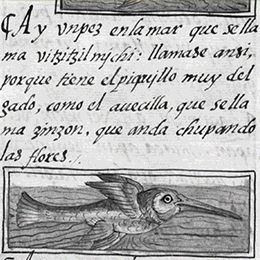 ¶ Ay vnpez enla mar que sella
ma vitzitzilmichi: llamase ansi,
porque tiene el piquillo muy del
gado, como el auecilla, que sella
ma zinzon, que anda chupando
las flores.